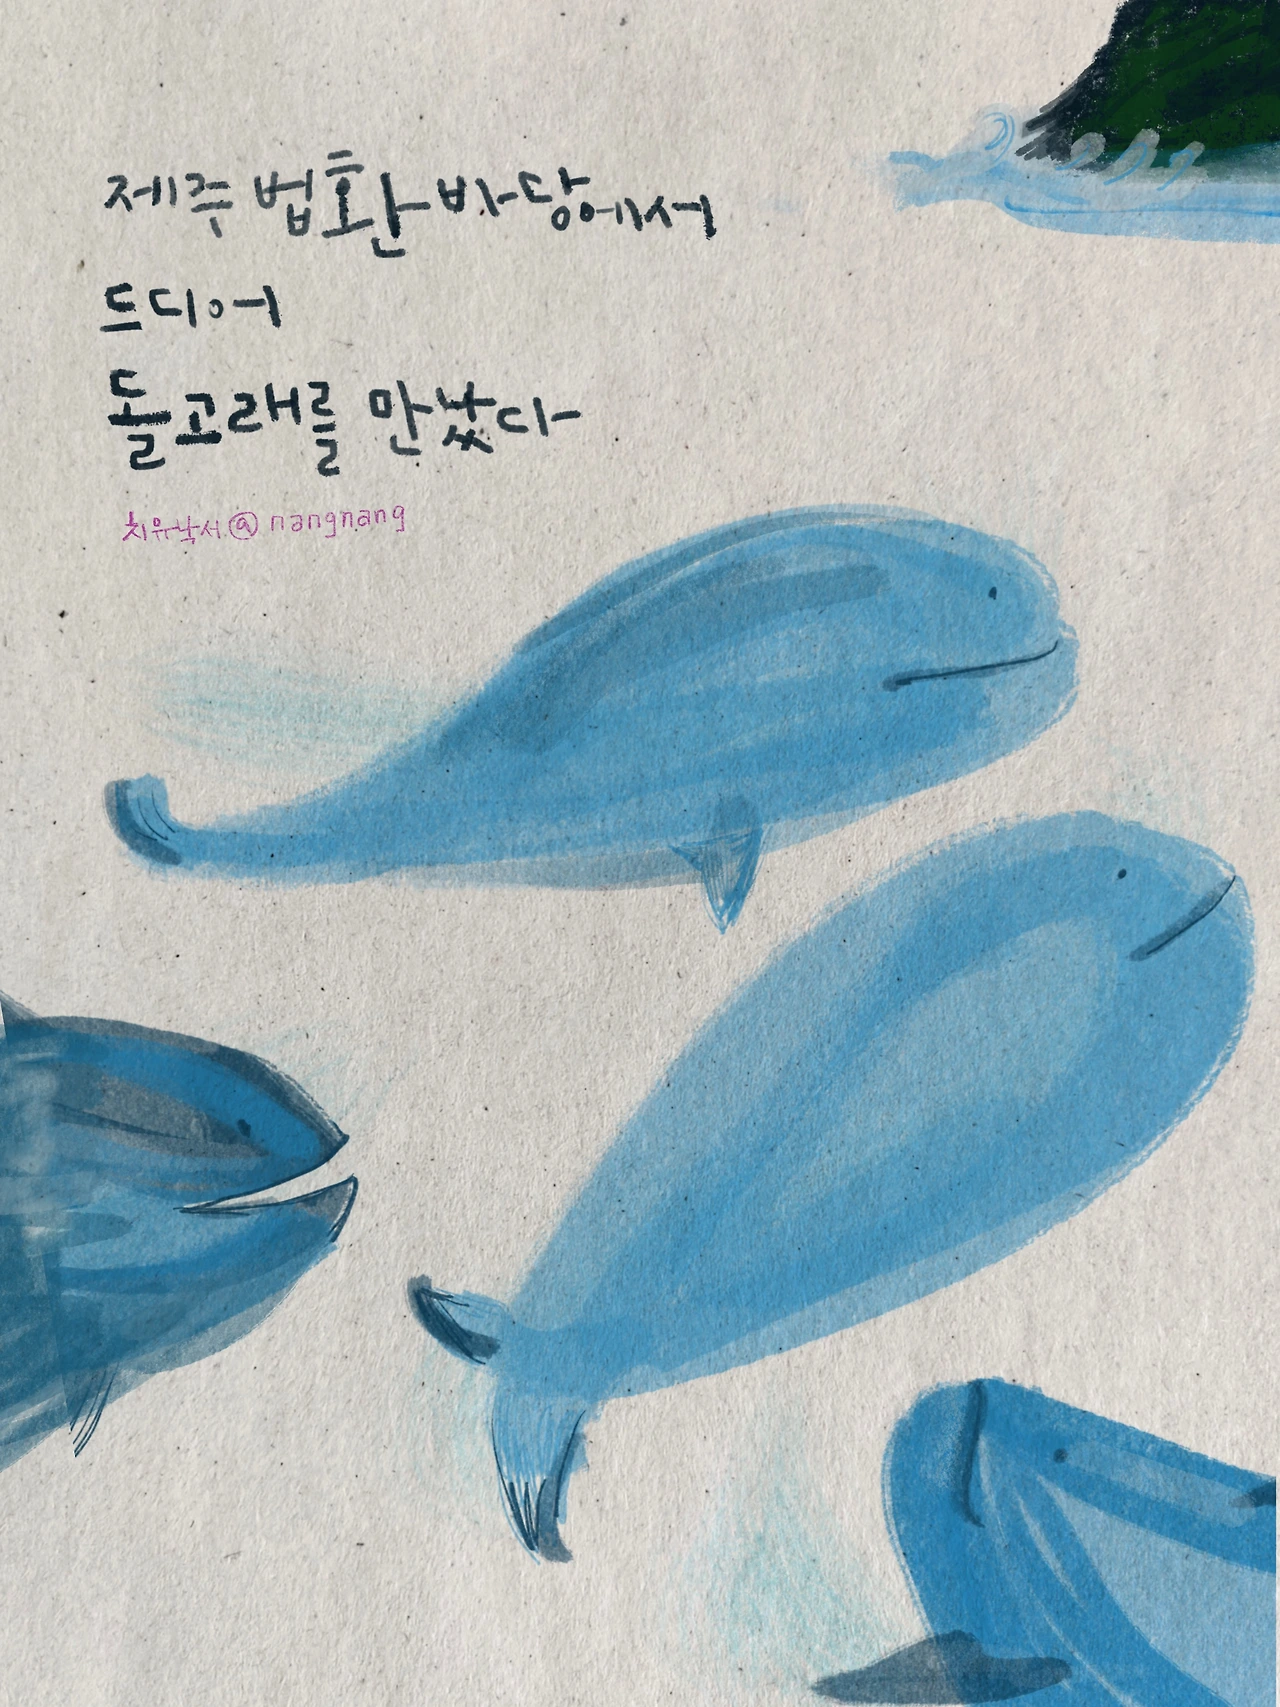 제주 법환 바당에서
드디어
돌고래를 만났다
치유낙서@nangnang